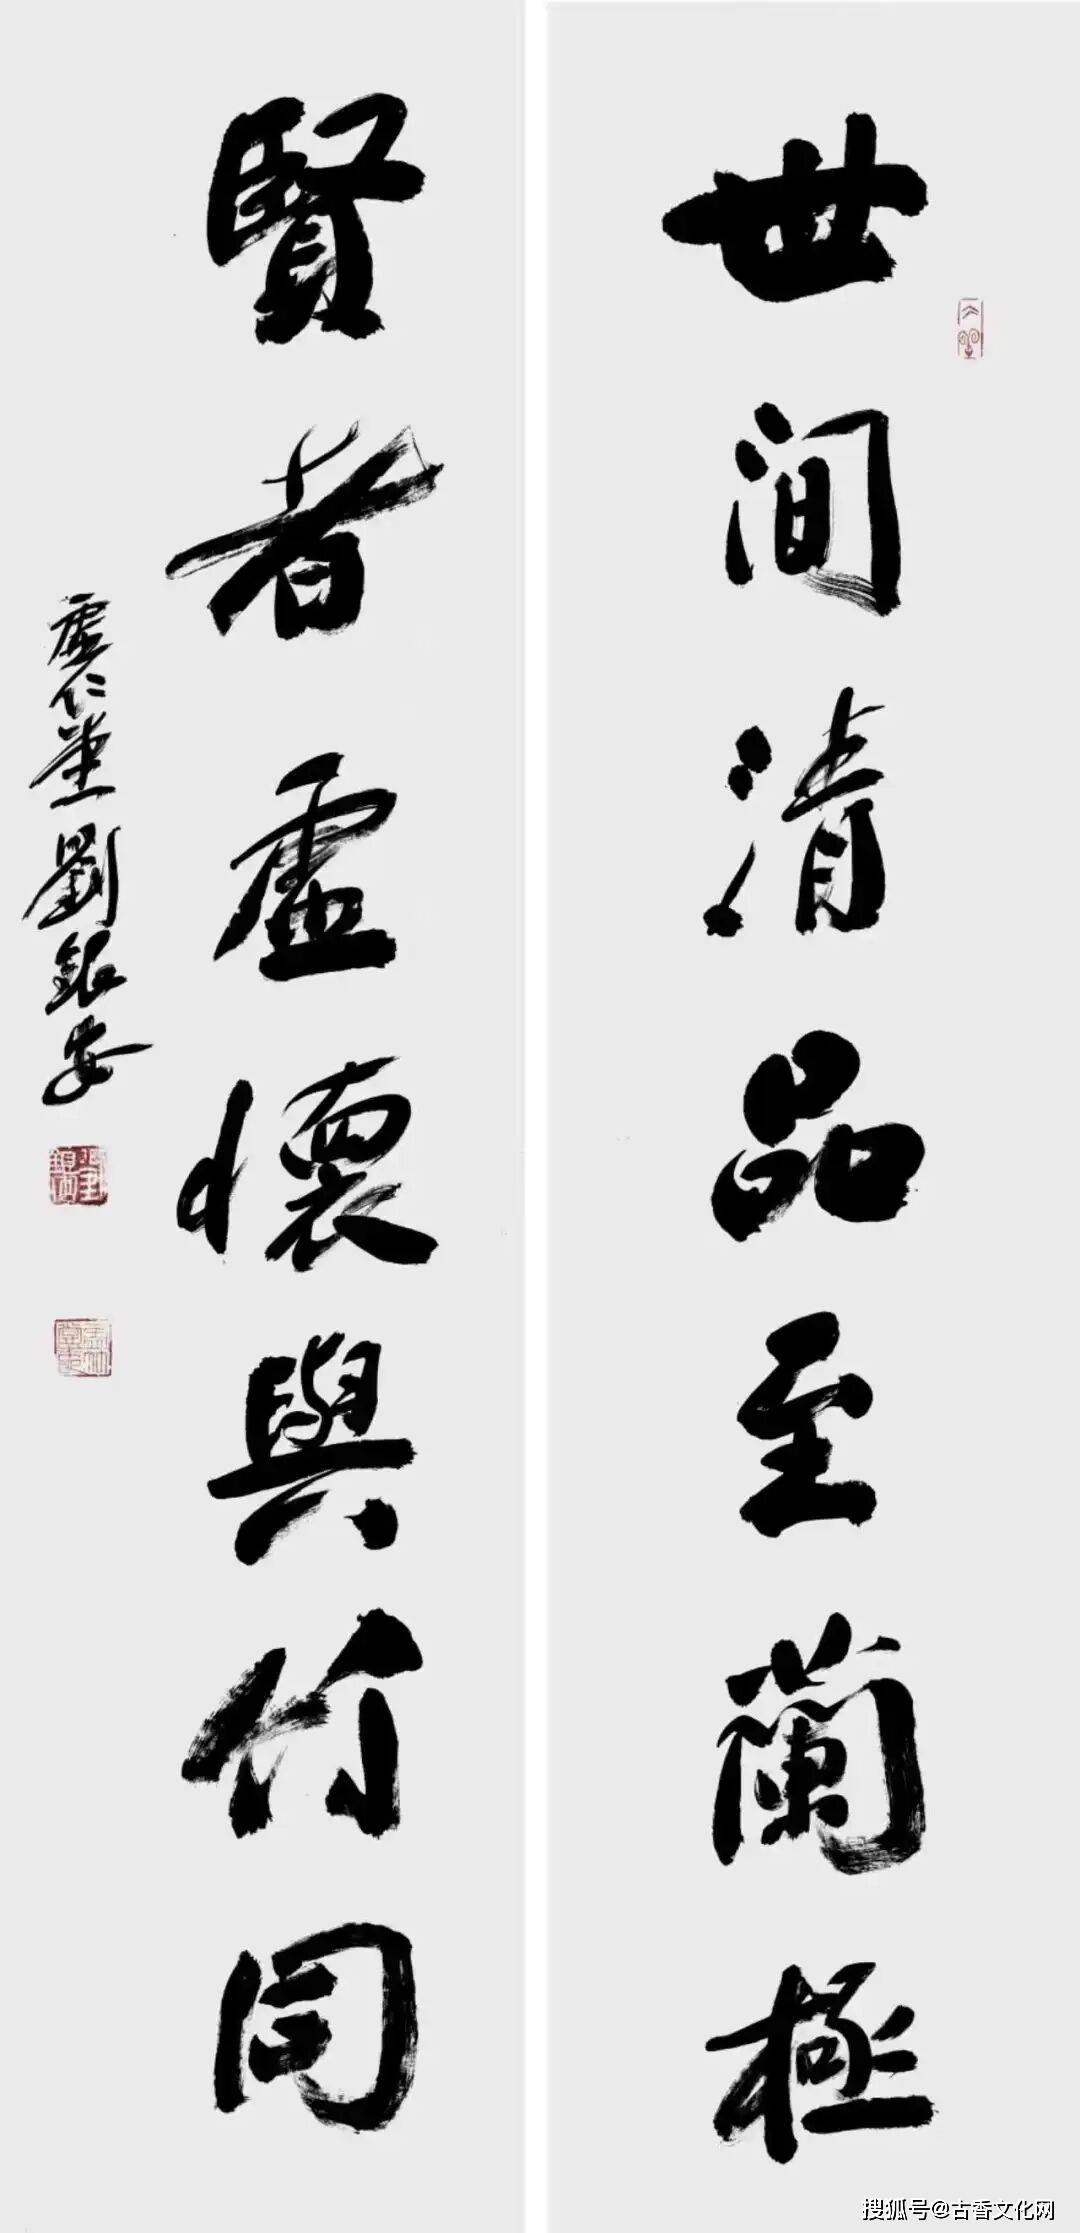 世間清品至蘭極
賢者虛懷與竹同
虛仁堂劉銀安
搜狐号@古香文化网